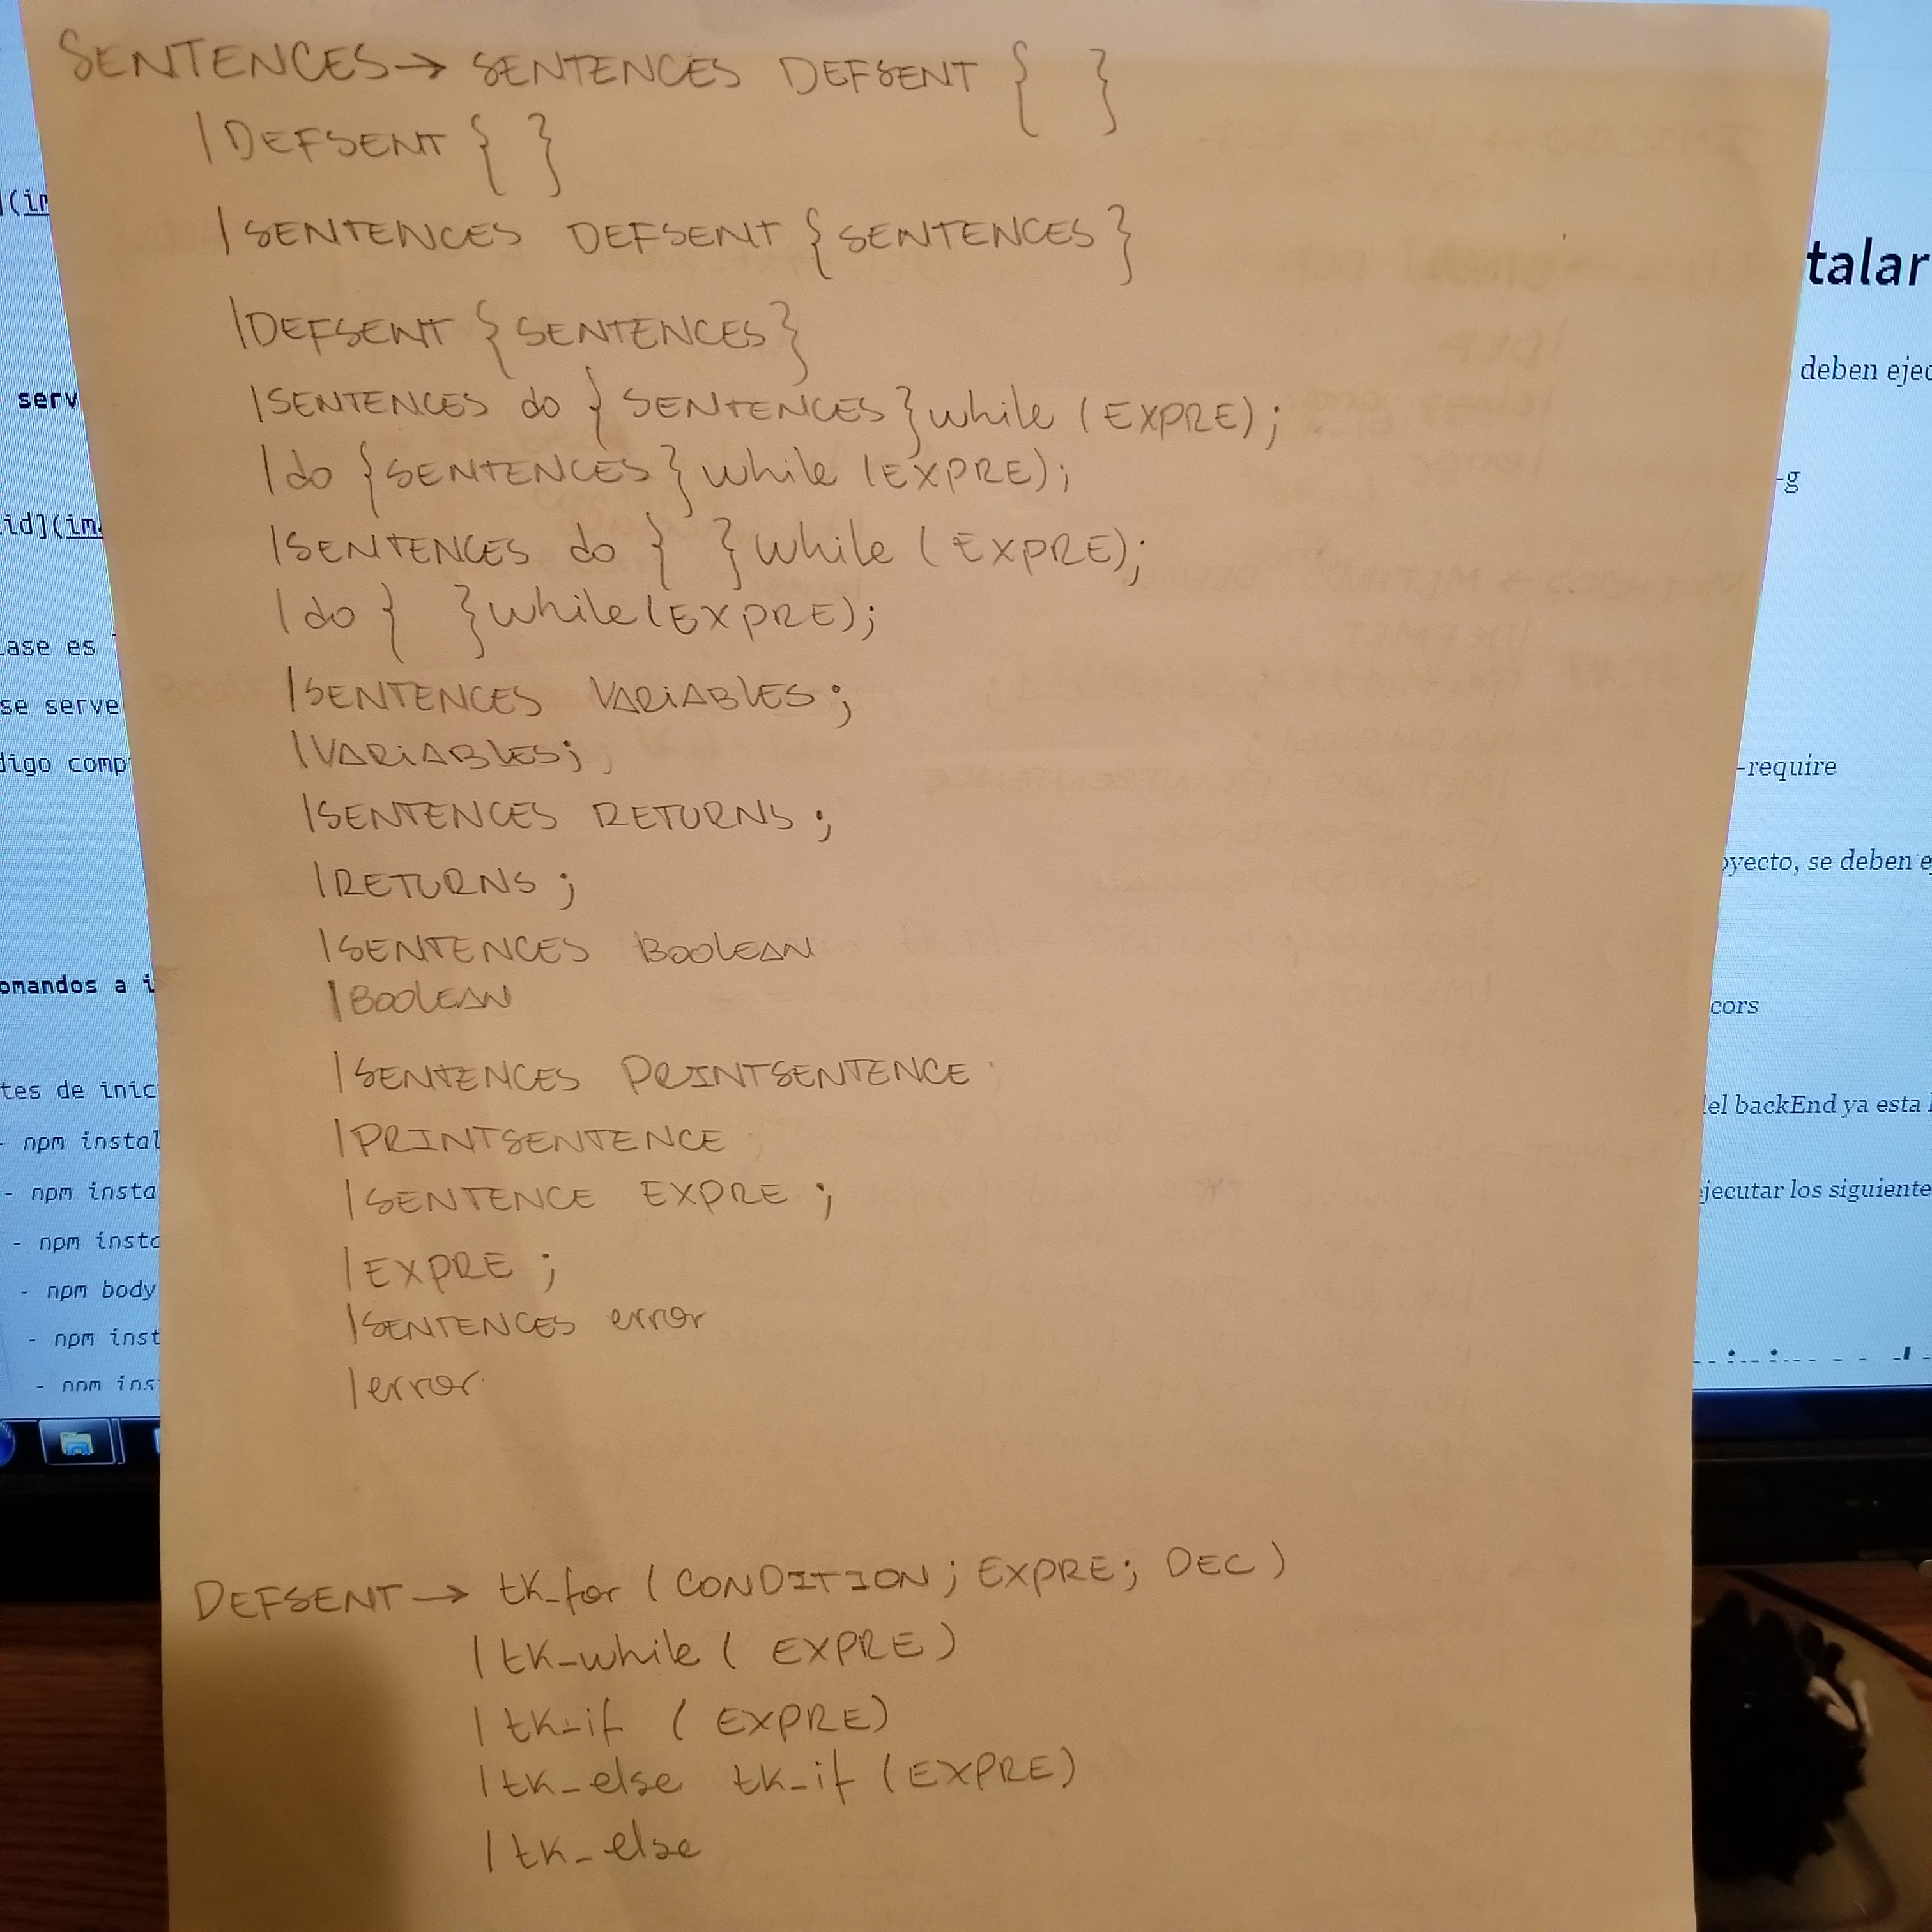 SENTENCES → SENTENCES DEFSENT { }
| DEFSENT { }
| SENTENCES DEFSENT { SENTENCES }
| DEFSENT { SENTENCES }
| SENTENCES do { SENTENCES } while (EXPRE);
| do { SENTENCES } while (EXPRE);
| SENTENCES do { } while (EXPRE);
| do { } while (EXPRE);
| SENTENCES VARIABLES;
| VARIABLES;
| SENTENCES RETURNS;
| RETURNS;
| SENTENCES BOOLEAN
| BOOLEAN
| SENTENCES PRINTSENTENCE
| PRINTSENTENCE
| SENTENCE EXPRE ;
| EXPRE ;
| SENTENCES error
| error
DEFSENT → tk_for (CONDITION; EXPRE; DEC)
| tk_while ( EXPRE)
| tk_if ( EXPRE)
| tk_else tk_if (EXPRE)
| tk_else
](im
serv
id](im
ase es
se serve
digo comp
omandos a i
tes de inic
- npm instal
- npm insta
- npm insta
- npm body
- npm inst
- npm ins
talar
deben ejec
-g
-require
oyecto, se deben e
cors
del backEnd ya esta
ejecutar los siguiente